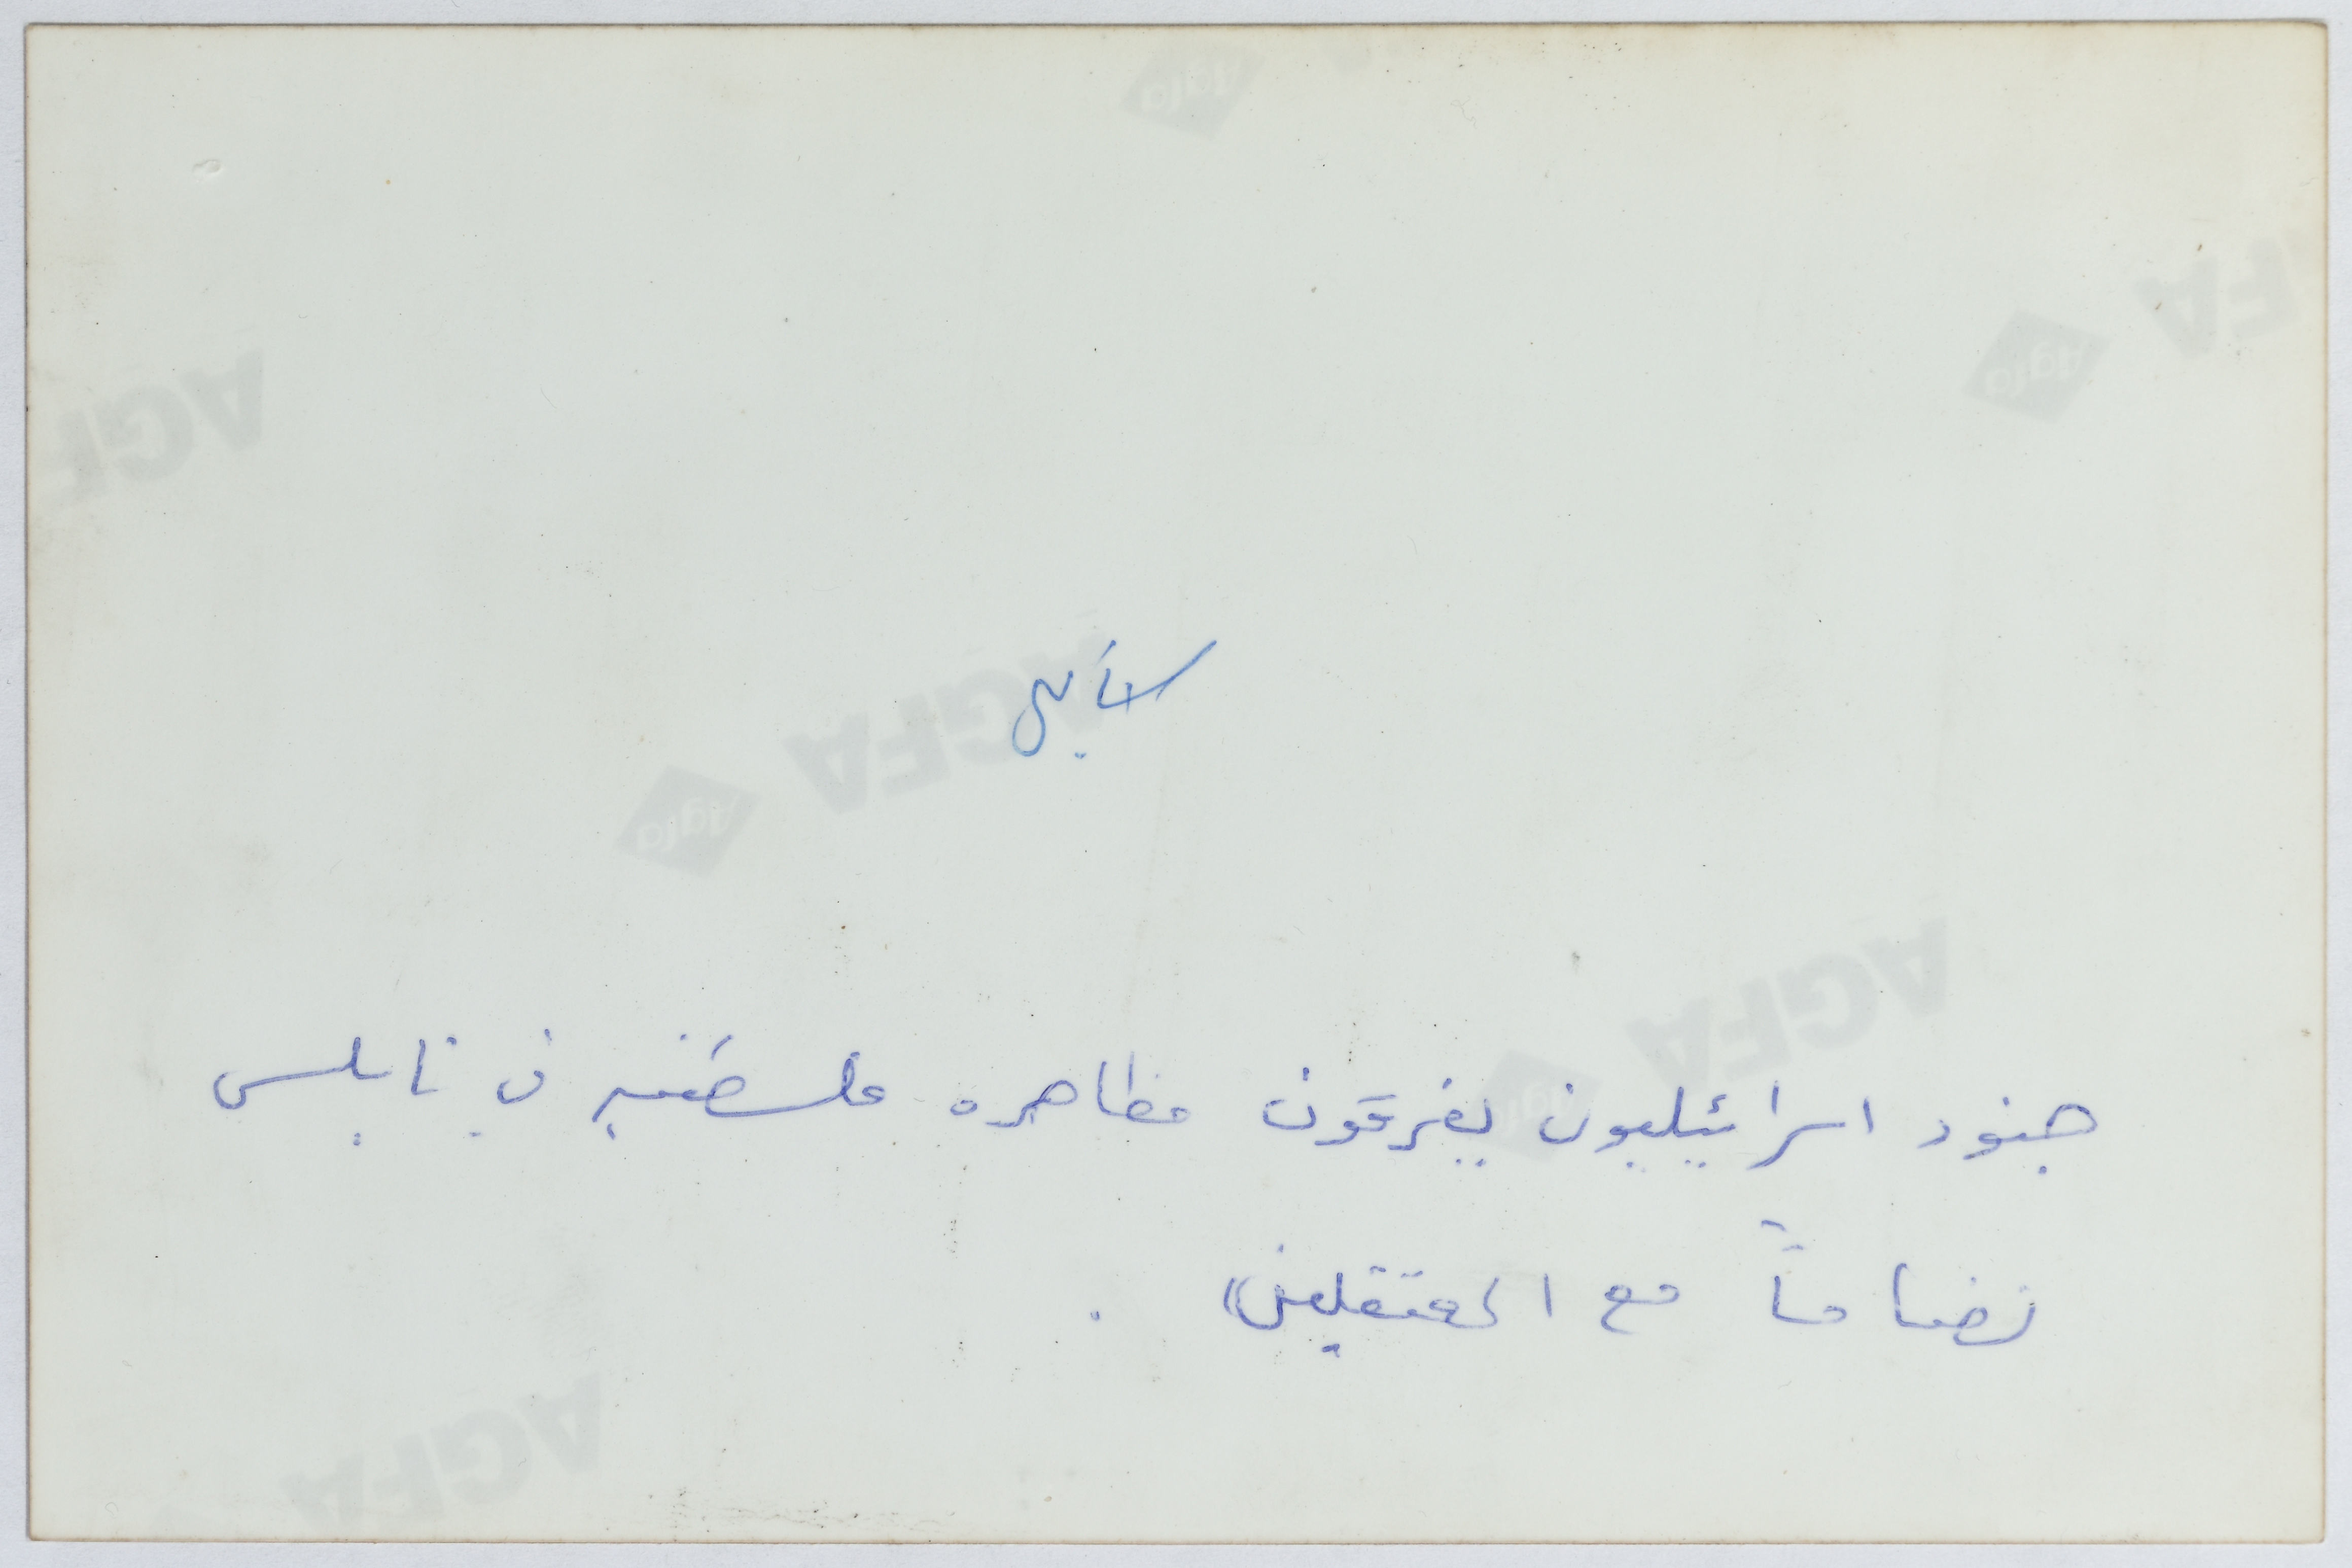 جنود اسرائيليون يفرقون مظاهره فلسطينيه في نابلس
تضامناً مع المعتقلين .
AGFA
Agfa